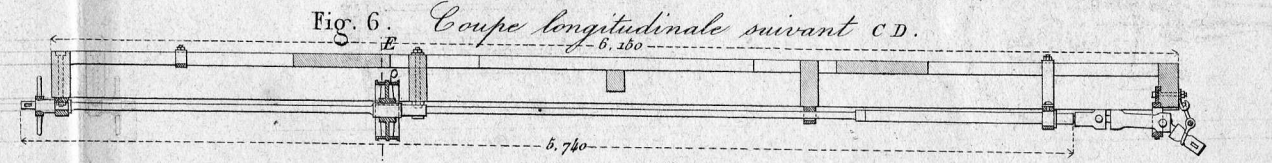 Fig. 6. Coupe longitudinale suivant C D.
6,160
E
5,740